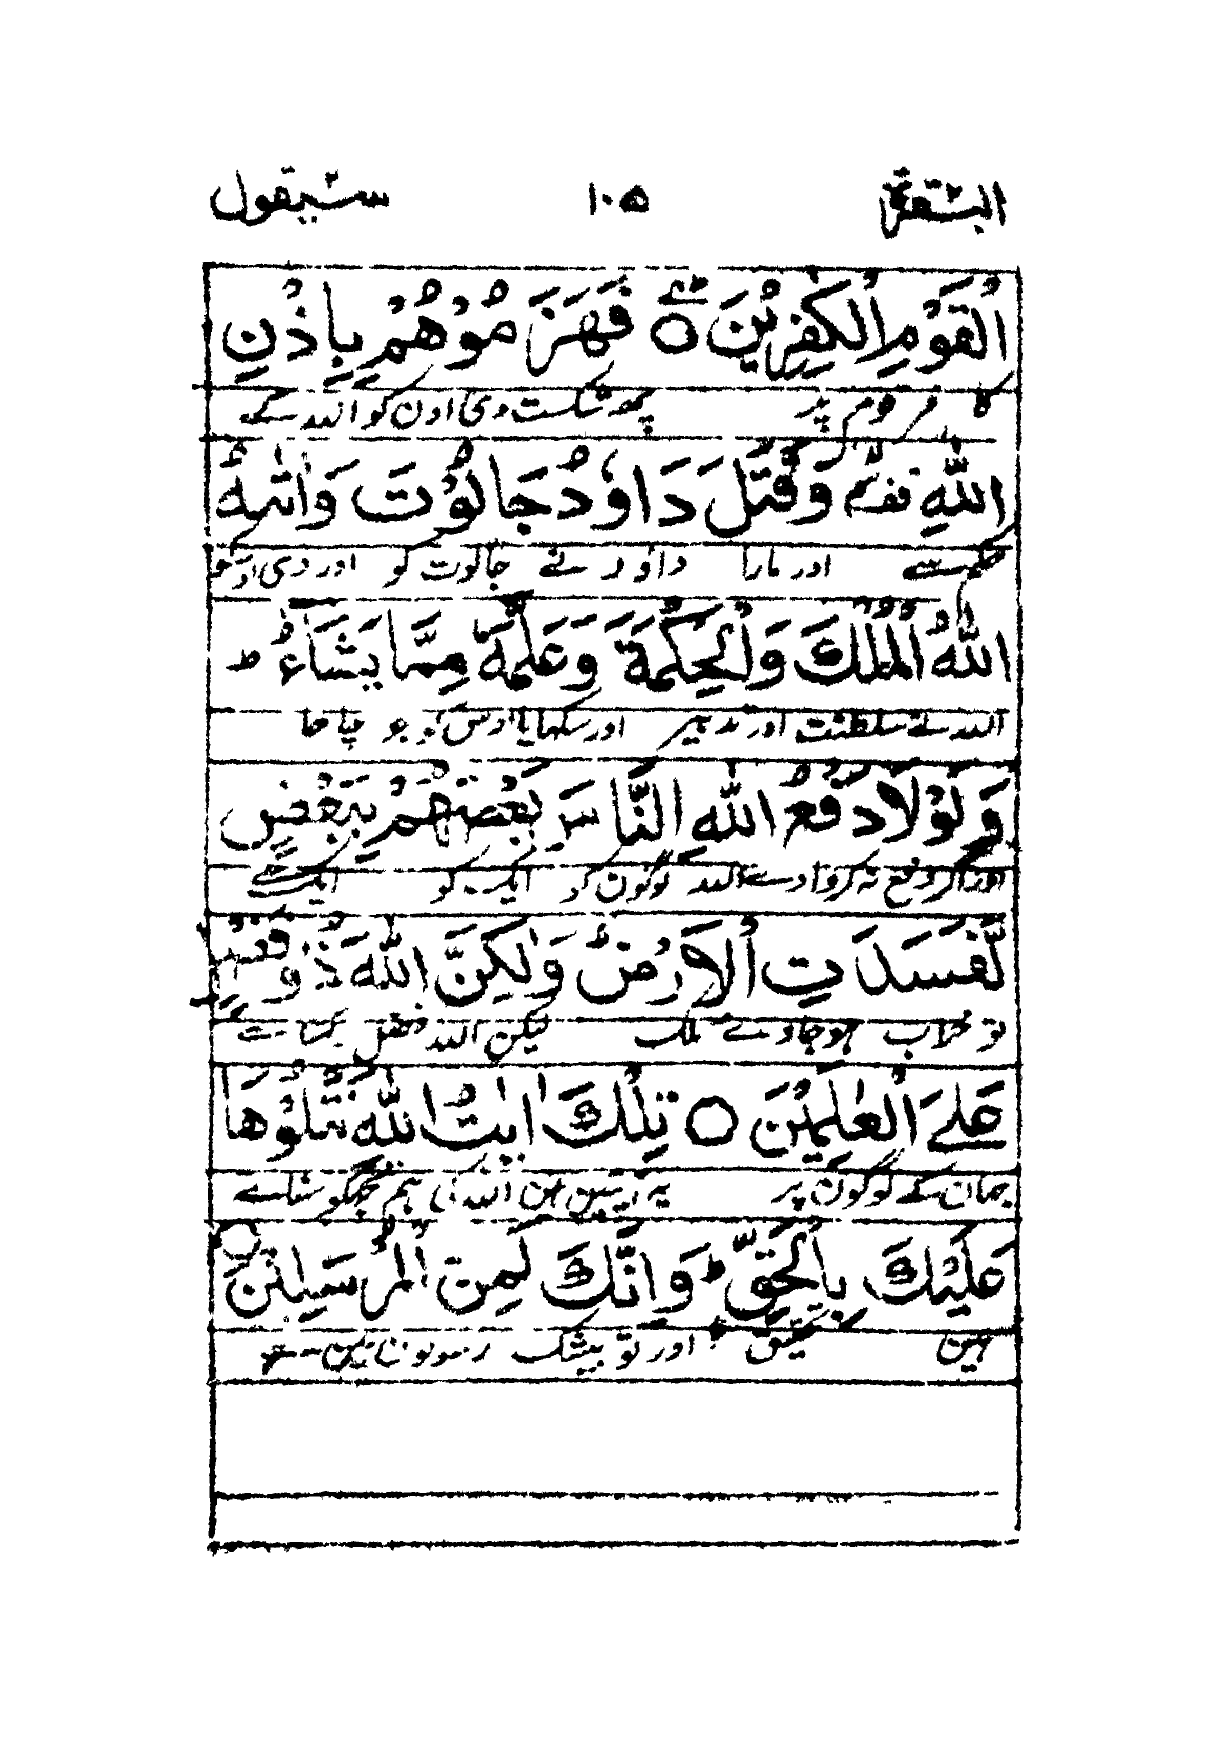 البقرة ۲ ۱۰۵ سیقول ۲
الْقَوْمِ الْكٰفِرِیْنَ ○ فَهَزَمُوْهُمْ بِاِذْنِ
قوم پر پھر شکست دی اون کو اللہ کے
اللّٰهِ وَقَتَلَ دَاوٗدُ جَالُوْتَ وَاٰتٰىهُ
حکم سے اور مارا داود نے جالوت کو اور دی اوسکو
اللّٰهُ الْمُلْكَ وَالْحِكْمَةَ وَعَلَّمَهٗ مِمَّا یَشَآءُ ط
اللہ نے سلطنت اور تدبیر اور سکھایا اوسکو جو چاہا
وَلَوْلَا دَفْعُ اللّٰهِ النَّاسَ بَعْضَهُمْ بِبَعْضٍ
اور اگر دفع نہ کروادے اللہ لوگون کو ایک کو ایک سے
لَّفَسَدَتِ الْاَرْضُ وَلٰكِنَّ اللّٰهَ ذُوْ فَضْلٍ
تو خراب ہو جاوے ملک لیکن اللہ فضل رکھتا ہے
عَلَى الْعٰلَمِیْنَ ○ تِلْكَ اٰیٰتُ اللّٰهِ نَتْلُوْهَا
جہان کے لوگون پر یہ آیتین ہین اللہ کی ہم تجھکو سناتے
عَلَیْكَ بِالْحَقِّ ط وَاِنَّكَ لَمِنَ الْمُرْسَلِیْنَ ○
ہین تحقیق اور تو بیشک رسولون مین ہے